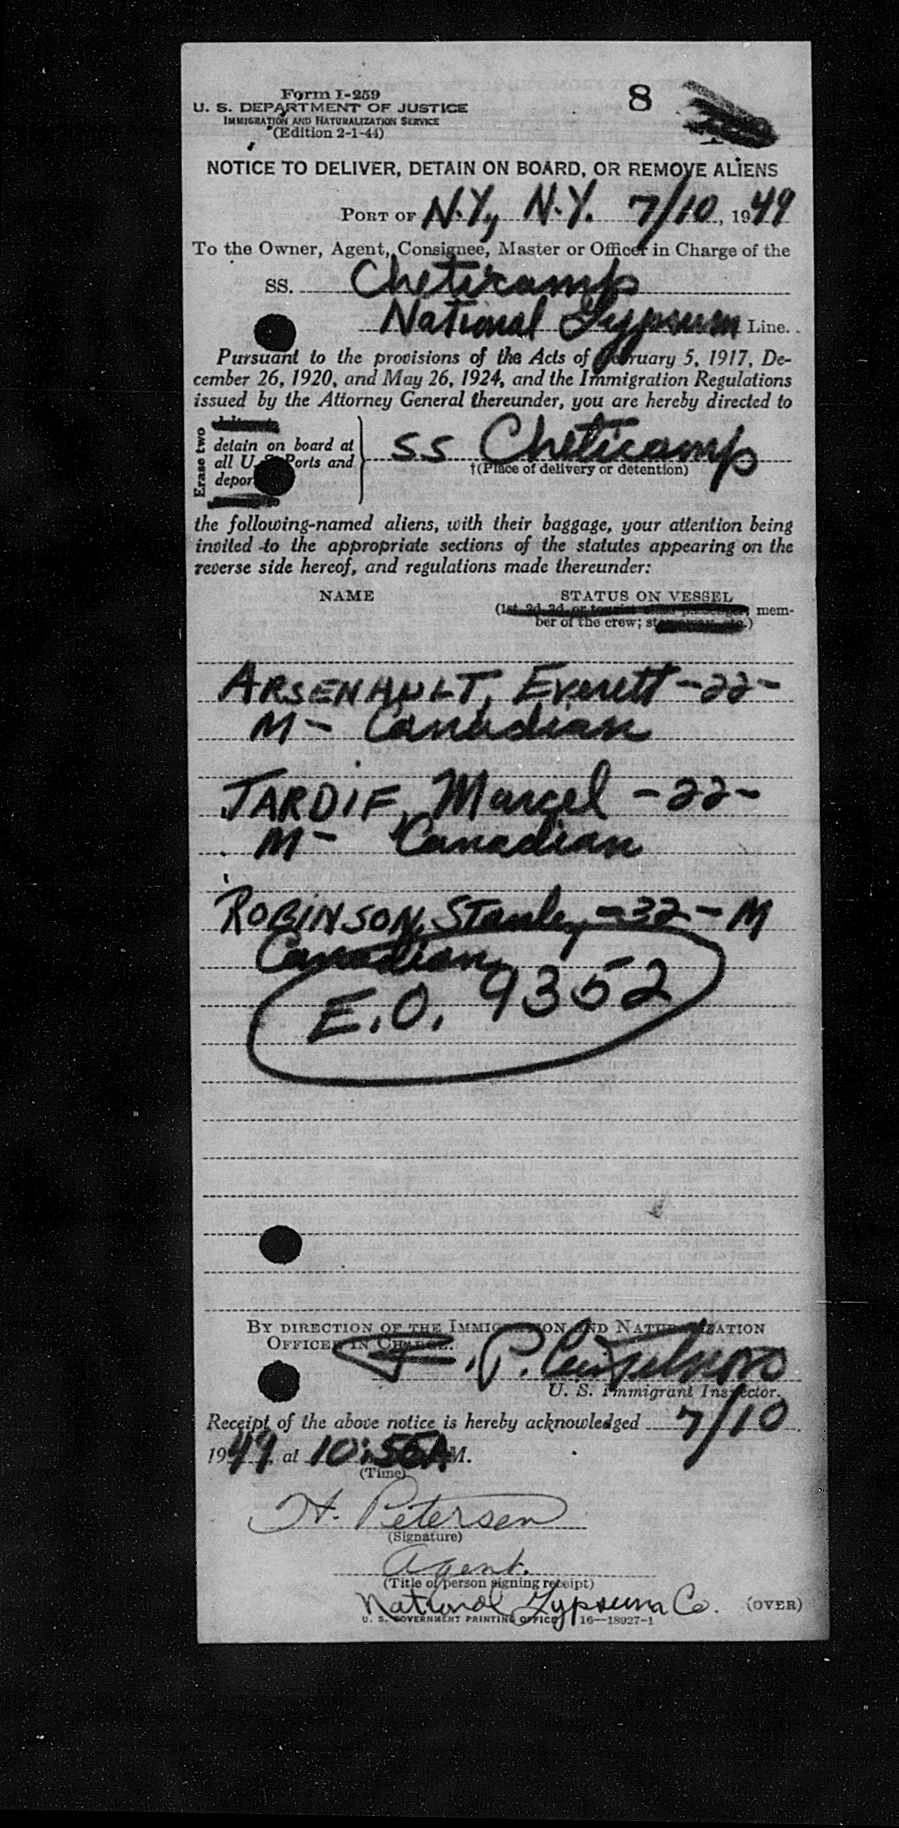 Form I-259
8
U. S. DEPARTMENT OF JUSTICE
IMMIGRATION AND NATURALIZATION SERVICE
(Edition 2-1-44)
NOTICE TO DELIVER, DETAIN ON BOARD, OR REMOVE ALIENS
PORT OF N.Y., N.Y. 7/10, 1949
To the Owner, Agent, Consignee, Master or Officer in Charge of the
SS. Cheticamp
National Gypsum Line.
Pursuant to the provisions of the Acts of February 5, 1917, De-
cember 26, 1920, and May 26, 1924, and the Immigration Regulations
issued by the Attorney General thereunder, you are hereby directed to
Erase two
detain on board at
all U. S. Ports and
deport
SS Cheticamp
†(Place of delivery or detention)
the following-named aliens, with their baggage, your attention being
invited to the appropriate sections of the statutes appearing on the
reverse side hereof, and regulations made thereunder:
NAME STATUS ON VESSEL
(1st, 2d, 3d, or tourist class passenger, mem-
ber of the crew; stowaway, etc.)
ARSENAULT, Everett -22-
M - Canadian
JARDIF, Marcel -22-
M - Canadian
ROBINSON, Stanley -32- M
Canadian
E.O. 9352
BY DIRECTION OF THE IMMIGRATION AND NATURALIZATION
OFFICER IN CHARGE.
P.
U. S. Immigrant Inspector.
Receipt of the above notice is hereby acknowledged 7/10
1949, at 10:55 A M.
(Time)
H. Petersen
(Signature)
Agent.
(Title of person signing receipt)
National Gypsum Co. (OVER)
U. S. GOVERNMENT PRINTING OFFICE 16—18927-1